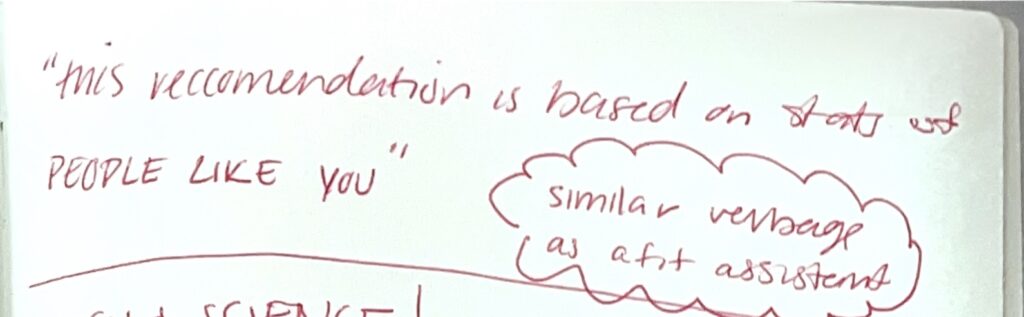 "this reccomendation is based on stats of
PEOPLE LIKE YOU"
similar verbage
as a fit assistant
SCIENCE